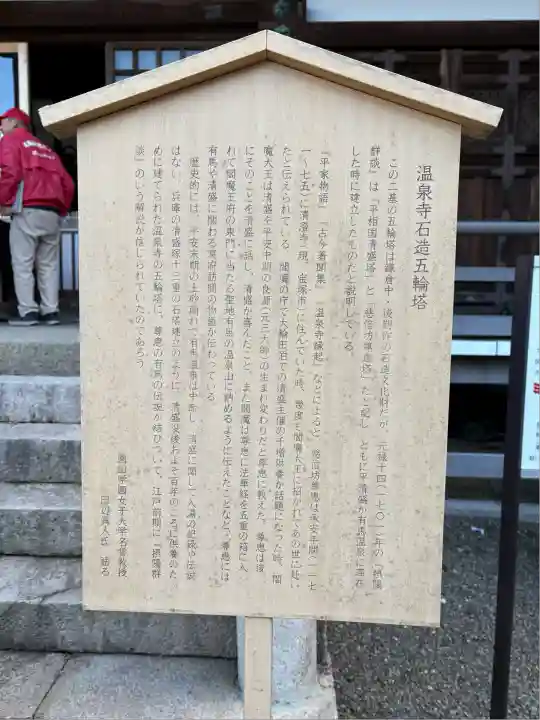 温泉寺石造五輪塔
この二基の五輪塔は鎌倉中・後期作の石造文化財だが、元禄十四(一七〇一)年の「摂陽
群談」は「平相国清盛塔」と「慈信坊尊恵塔」だと記し、ともに平清盛が有馬温泉に滞在
した時に建立したものだと説明している。
「平家物語」「古今著聞集」「温泉寺縁起」などによると、慈信坊尊恵は承安年間(一一七
一〜七五)に清澄寺(現、宝塚市)に住んでいた時、幾度も閻魔大王に招かれてあの世に赴い
たと伝えられている。閻魔の庁で大輪田泊での清盛主催の千僧供養が話題になった時、閻
魔大王は清盛を平安中期の良源(元三大師)の生まれ変わりだと尊恵に教えた。尊恵は後
にそのことを清盛に話し、清盛が喜んだこと、また閻魔は尊恵に法華経を五重の箱に入
れて閻魔王府の東門に当たる聖地有馬の温泉山に納めるように伝えたことなど、尊恵には
有馬や清盛に関わる冥府訪問の物語が伝わっている。
歴史的には、平安末期の土砂崩れで有馬温泉は中断し、清盛に関して入湯の記録や伝説
はない。兵庫の清盛塚十三重の石塔建立のように、清盛没後およそ百年のころに供養のた
めに建てられた温泉寺の五輪塔に、尊恵の有馬の伝説が結びついて、江戸前期に「摂陽群
談」のいう解説が信じられていたのであろう。
園田学園女子大学名誉教授
田辺眞人氏 誌る